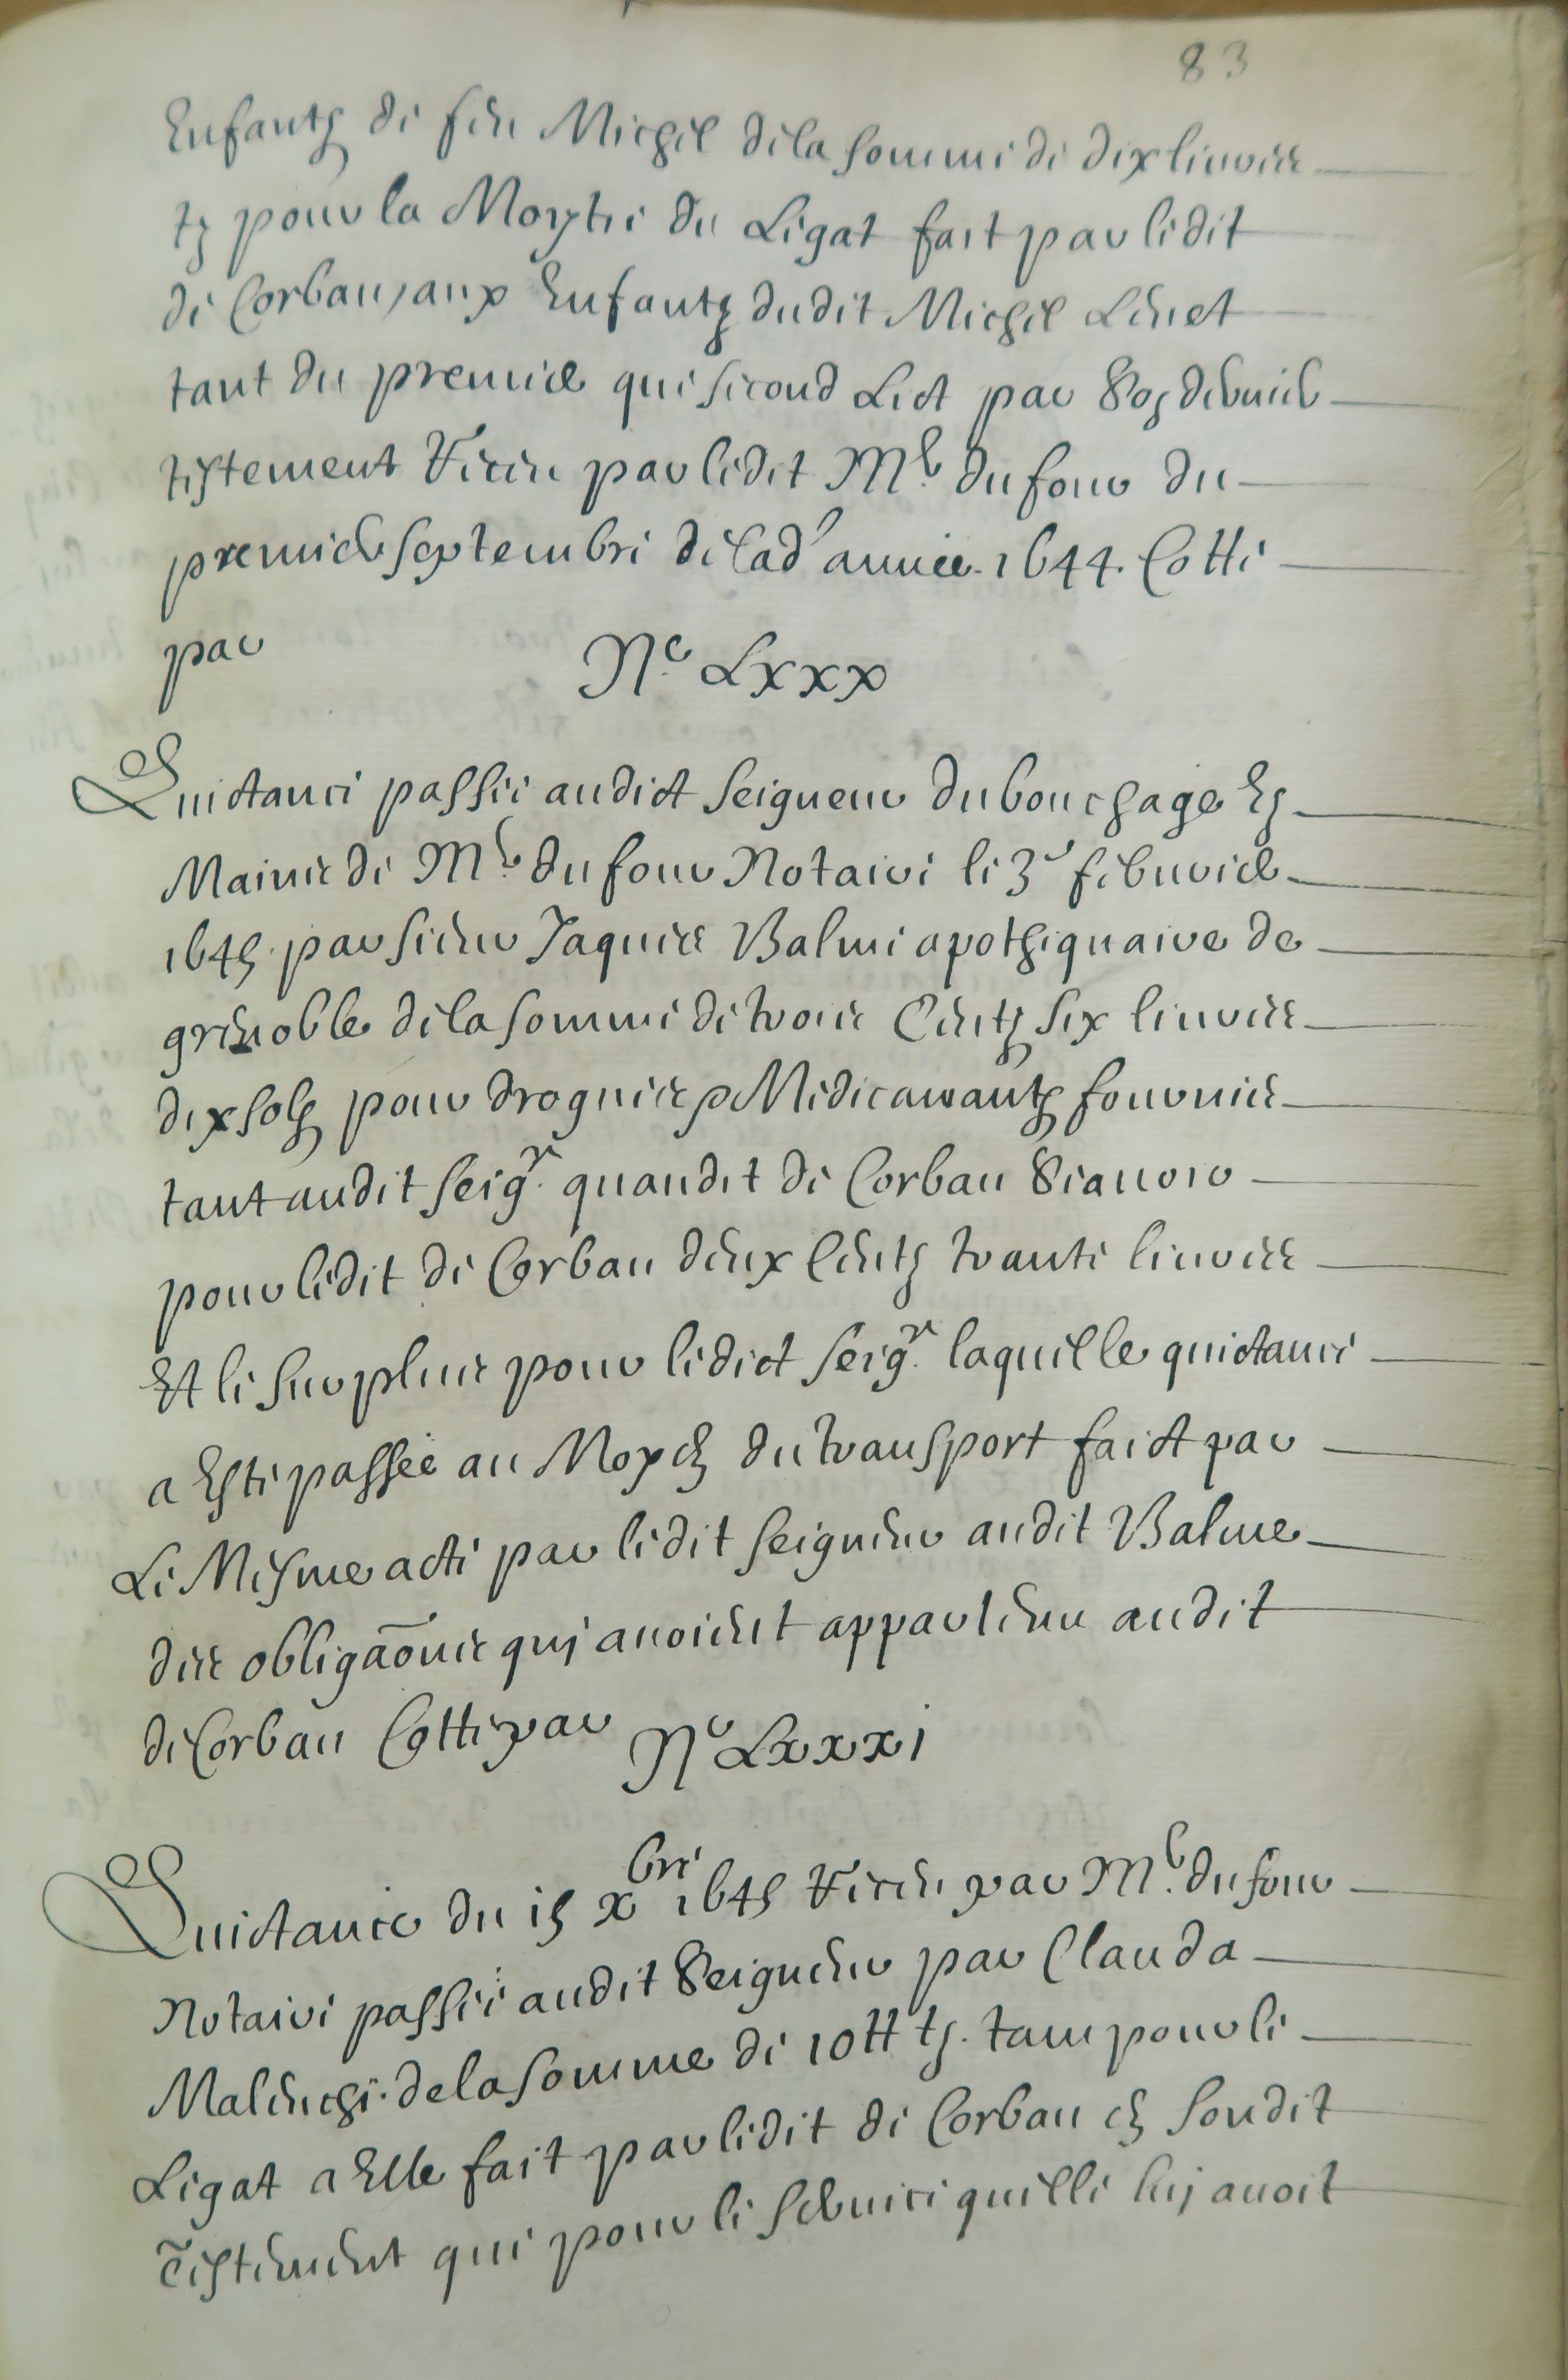 83
Enfantz de feu Michel de la somme de dix livres
tz pour la Moytie du Legat fait par ledit
de Corbau, aux Enfantz dudit Michel Lenet
tant du premier que second Lict par Sos dernier
testement Receu par ledit Mr. du four du
premier septembre de lad' annee. 1644. Cotté
par
No. Lxxx
Quictance passée audict seigneur du bouchage Es
Mains de Mr. du four Notaire le 3e febvrier
1645. par sieur Jaques Balme apothiquaire de
grenoble de la somme de trois Centz six livres
dix solz pour drogues & Medicamantz fournies
tant audit seigr. quaudit de Corbau Scavoir
pour ledit de Corbau deux Centz trante livres
Et le surplus pour ledict seigr. laquelle quictance
a Esté passée au Moyen du transport faict par
Le Mesme acte par ledit seigneur audit Balme
des obligaōnes quj avoient appartenu audit
de Corbau Cotté par No Lxxxi
Quictance du 15 xbre 1645 Receu par Mr. du four
Notaire passée audit Seigneur par Clauda
Malenche. de la somme de 10tt ts. tam pour le
Legat a Elle fait par ledit de Corbau en sondit
Testement que pour le service quelle luj avoit